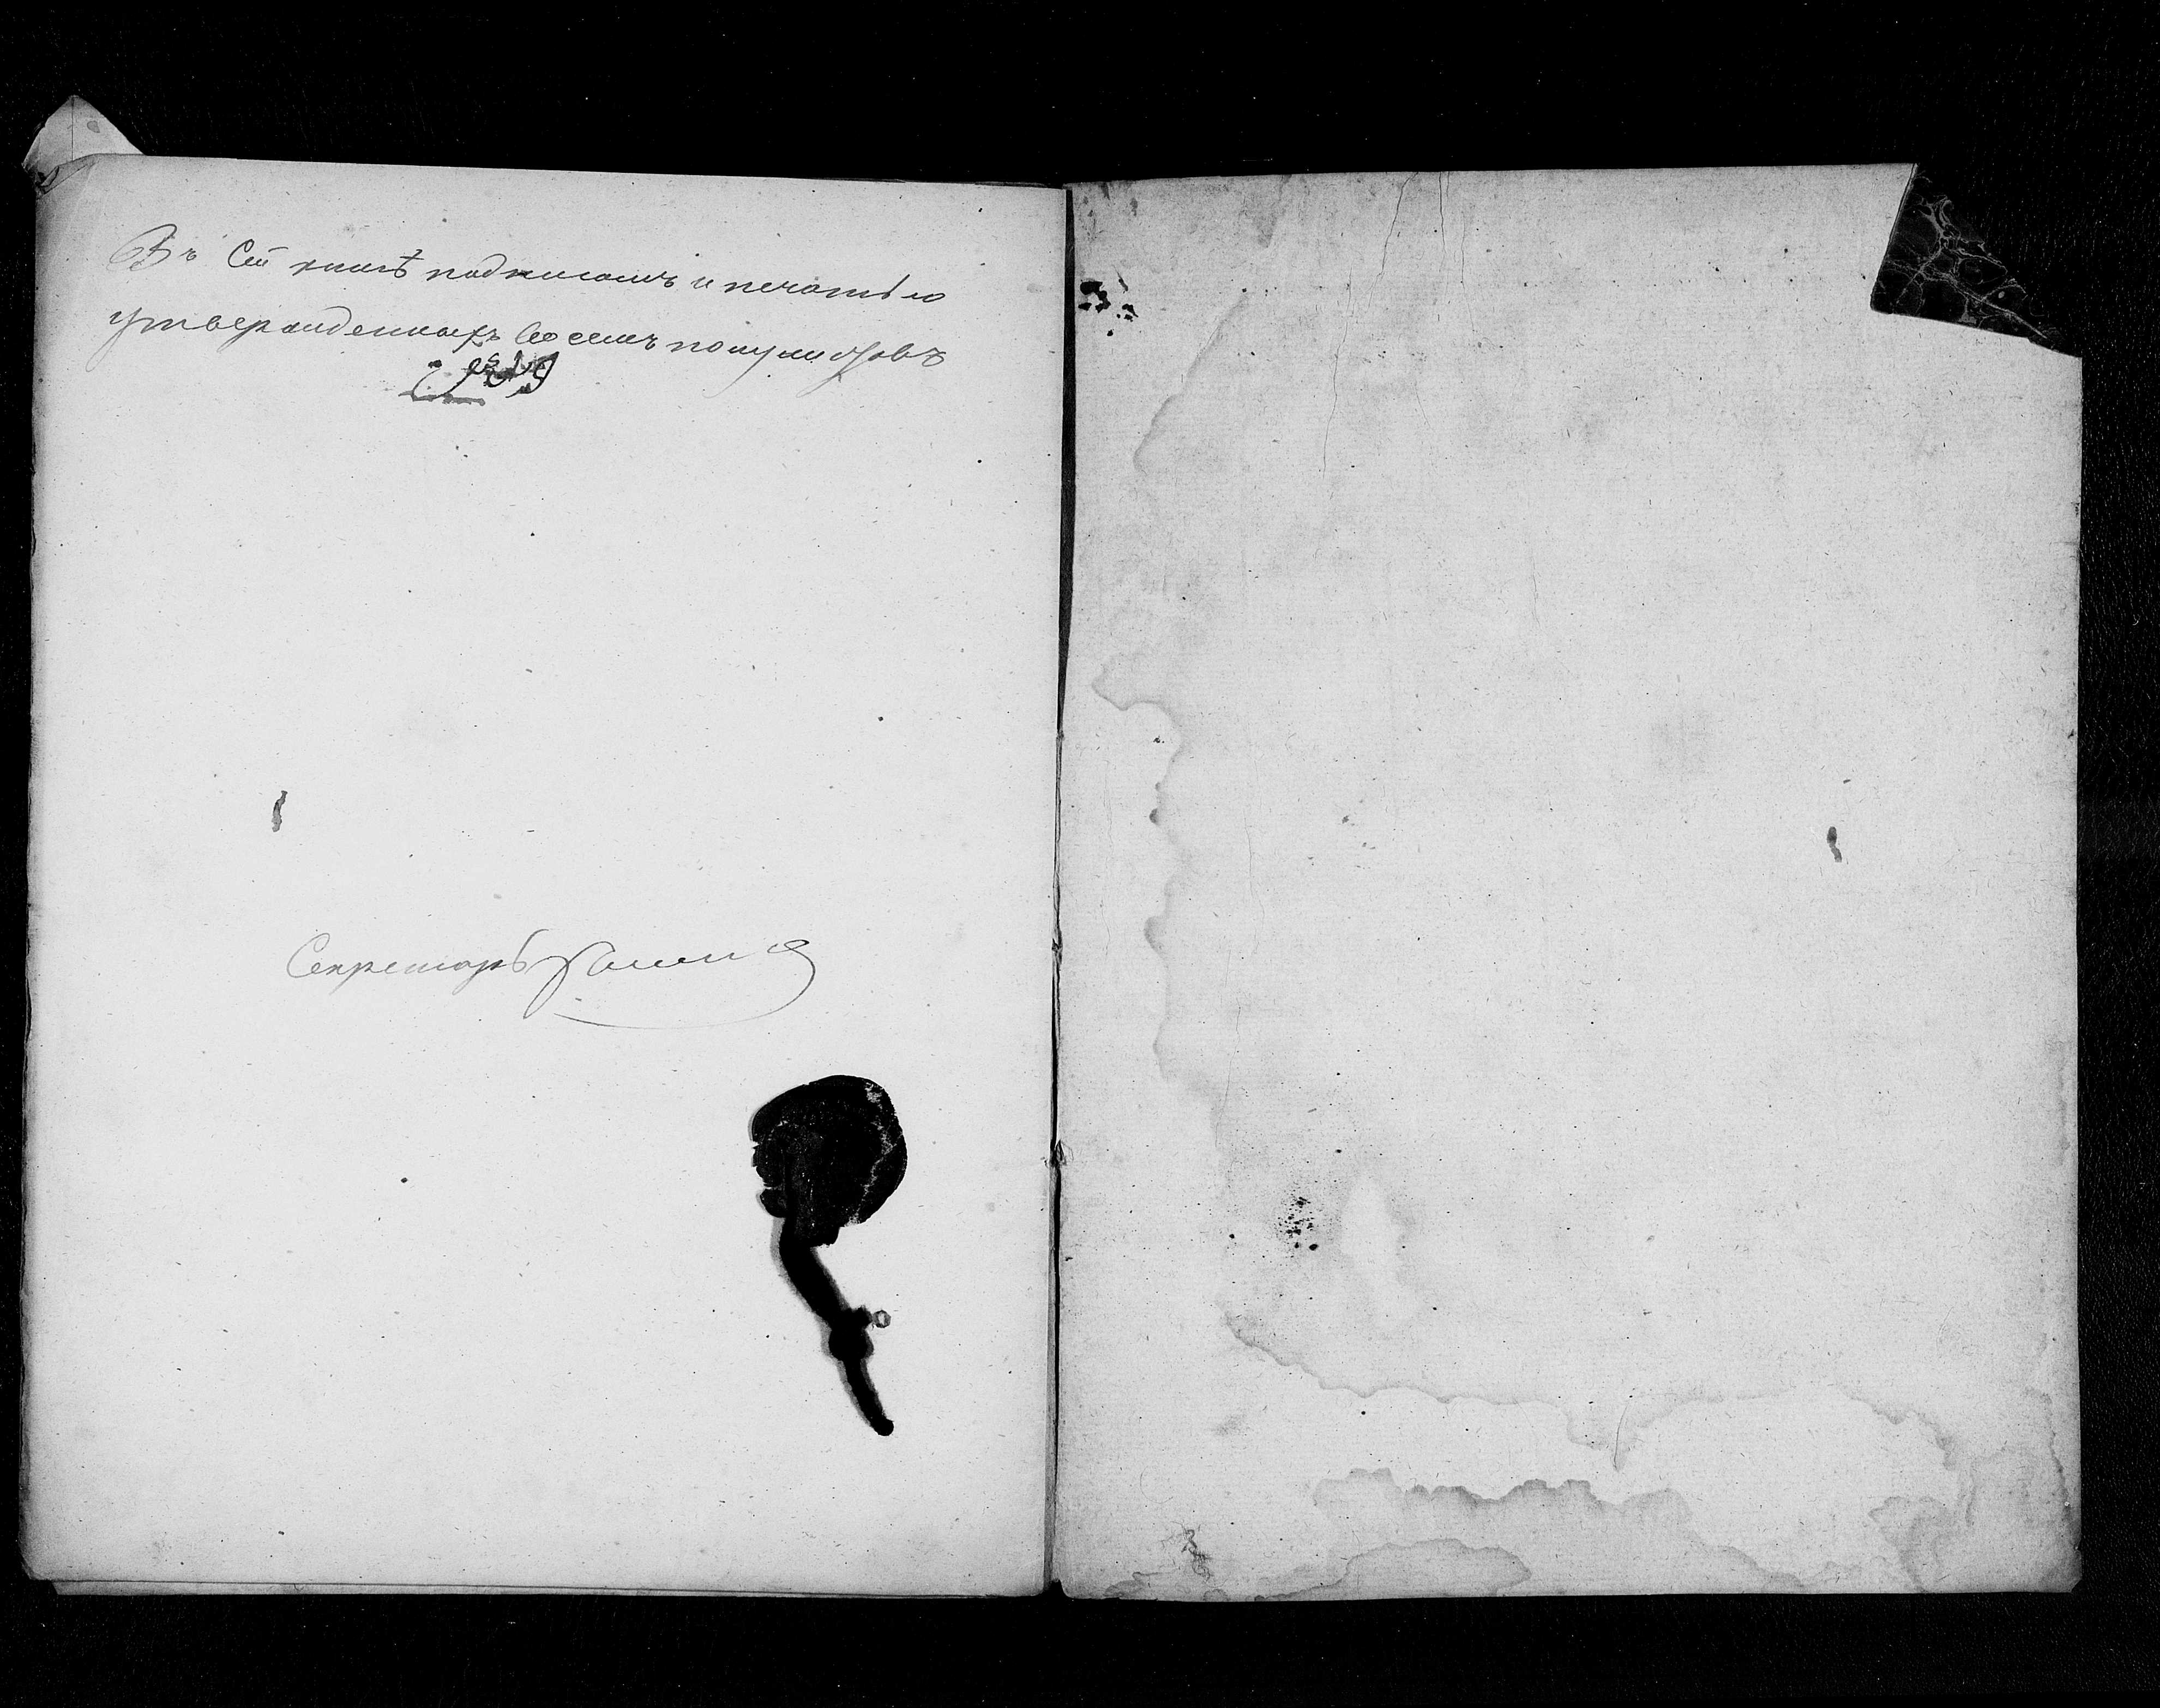 Въ сей книгѣ подписомъ и печатью
утвержденныхъ восемь полулистовъ
Секретарь